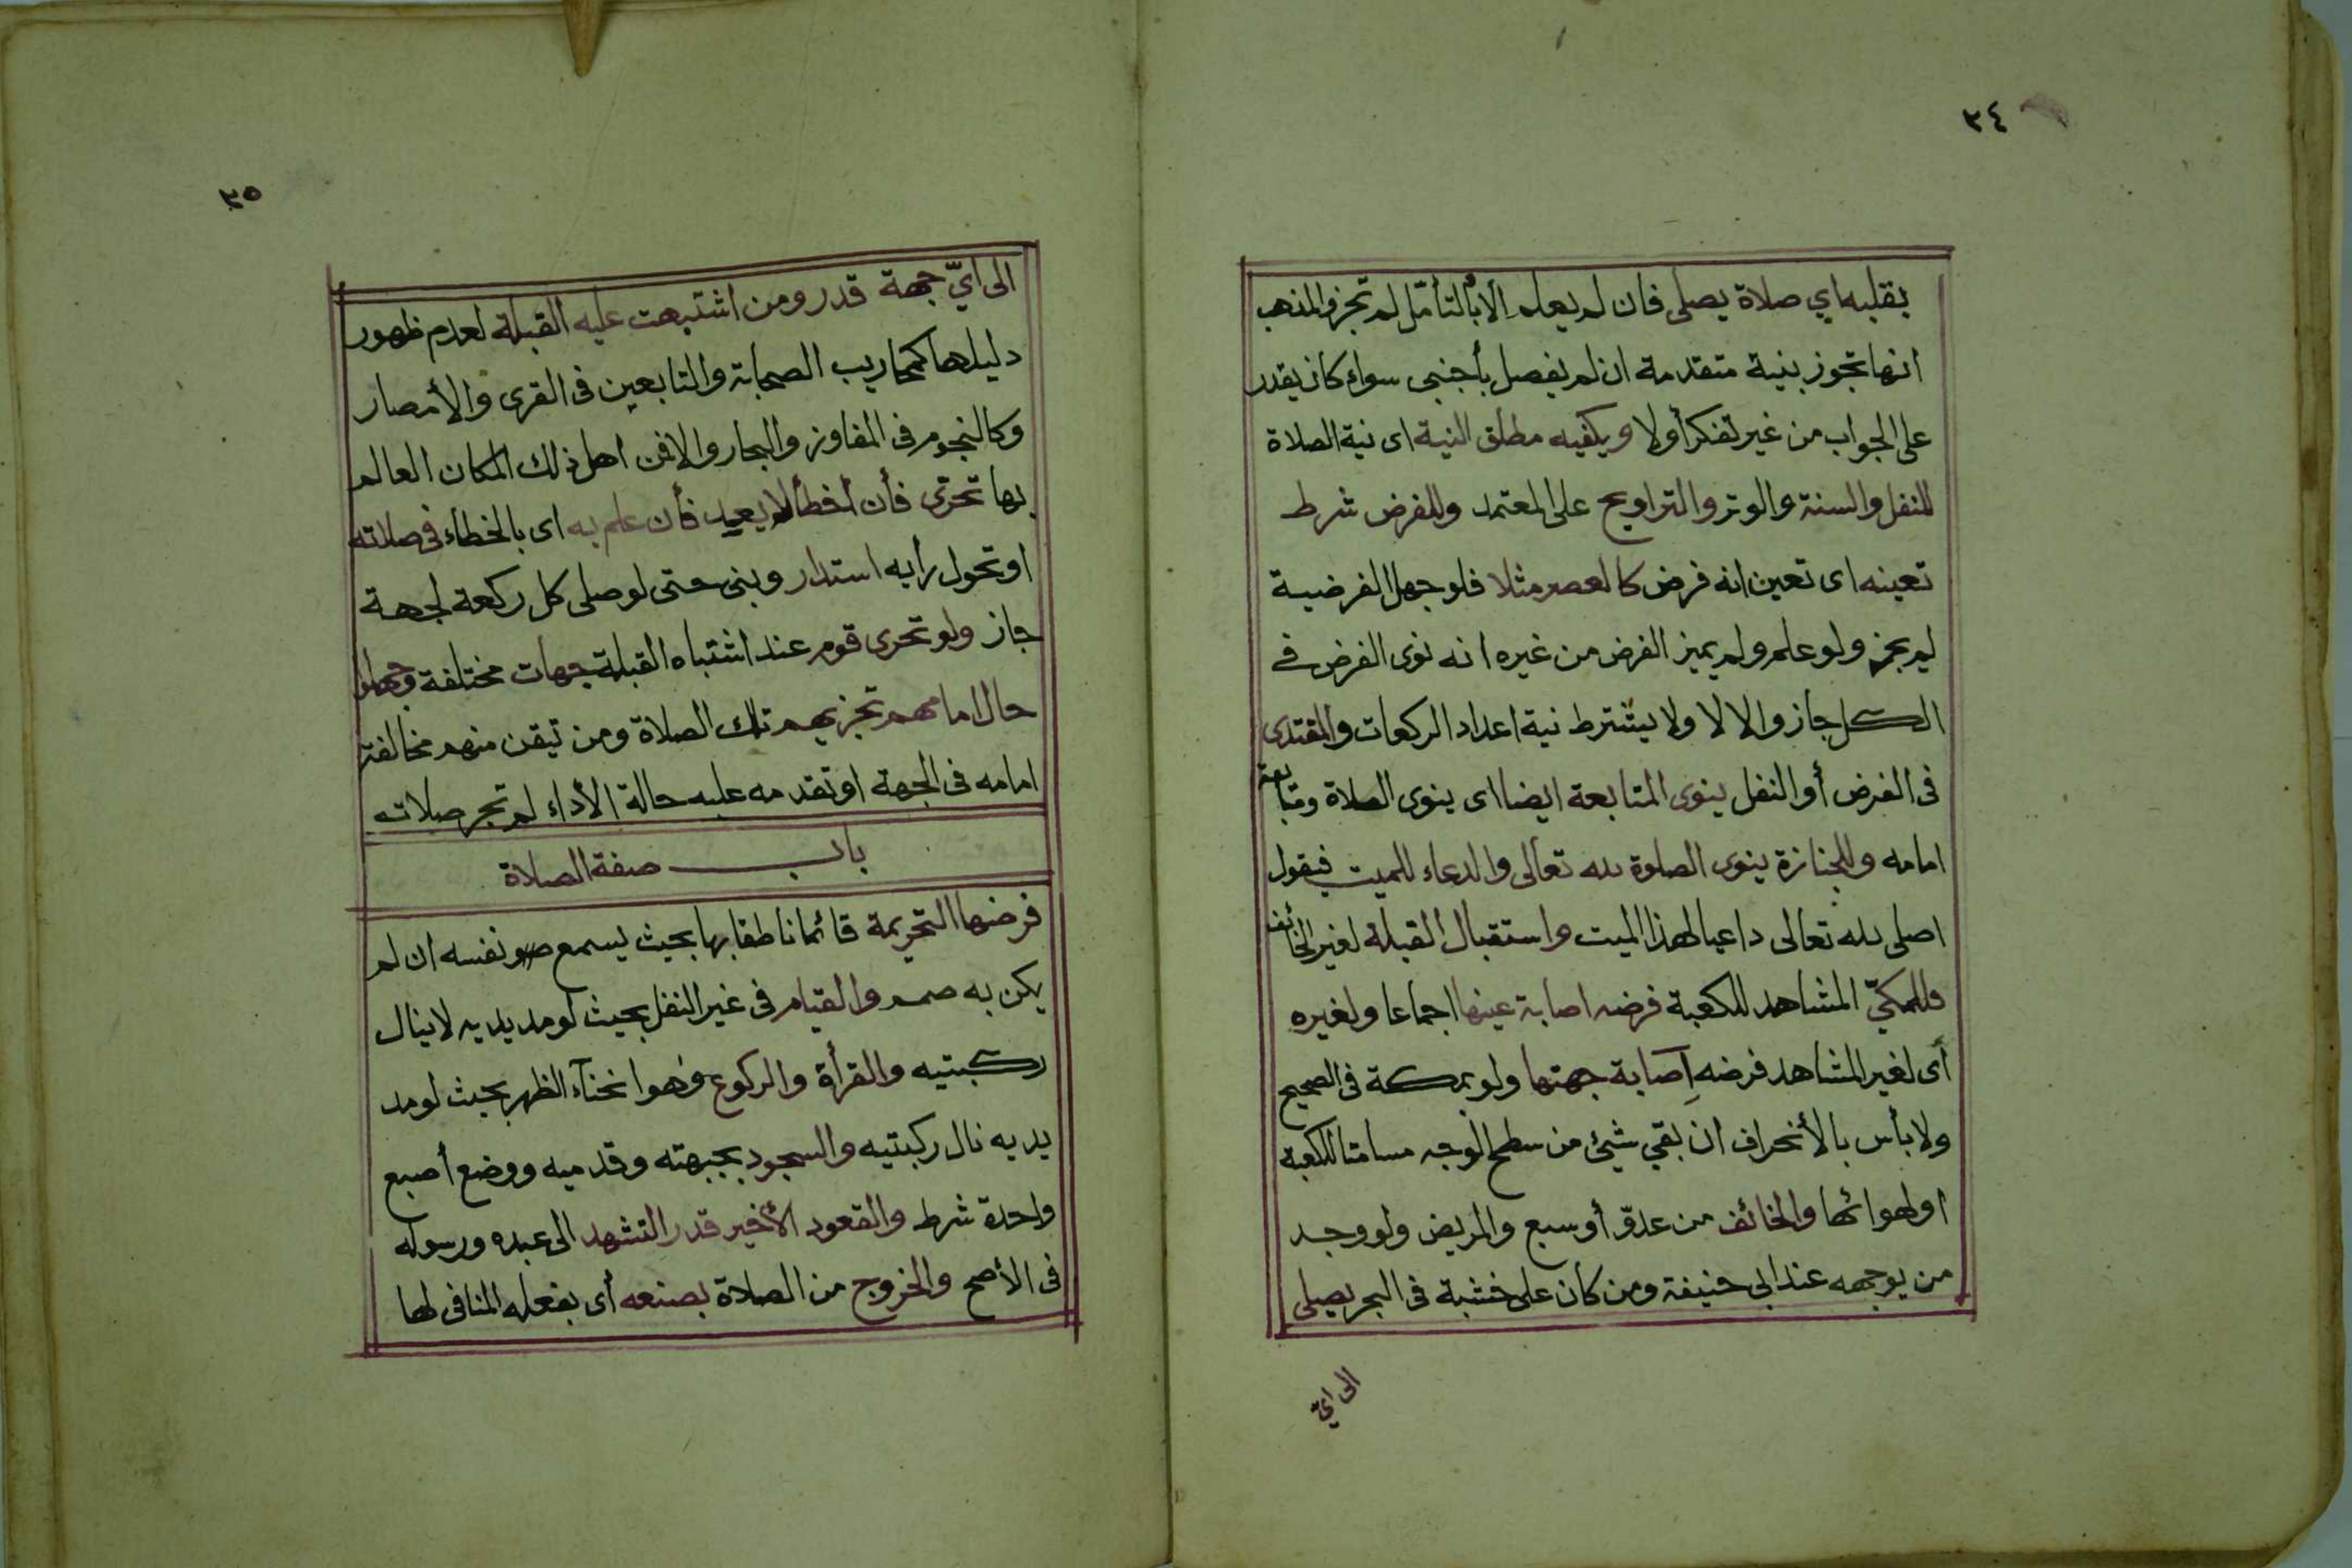 ٣٤
بقلبه اي صلاة يصلى فان لم يعلم الا بالتأمّل لم تجز والمذهب
انها تجوز بنية متقدمة ان لم يفصل بأجنبى سواء كان يقدر
على الجواب من غير تفكر أولا ويكفيه مطلق النية اى نية الصلاة
للنفل والسنة والوتر والتراويح على المعتمد وللفرض شرط
تعينه اى تعين انه فرض كالعصر مثلا فلو جهل الفرضية
لم يجز ولو علم ولم يميز الفرض من غيره انه نوى الفرض في
الكل جاز والا لا ولا يشترط نية اعداد الركعات والمقتدى
فى الفرض أو النفل ينوى المتابعة ايضا اى ينوى الصلاة ومتابعة
امامه وللجنازة ينوى الصلوة لله تعالى والدعاء للميت فيقول
اصلى لله تعالى داعيا لهذا الميت واستقبال القبلة لغير الخائف
فللمكيّ المشاهد للكعبة فرضه اصابة عينها اجماعا ولغيره
أى لغير المشاهد فرضه إصابة جهتها ولو بمكة فى الصحيح
ولا بأس بالأنحراف ان بقي شيئ من سطح الوجه مسامتا للكعبة
او لهوائها والخائف من عدوّ أو سبع والمريض ولو وجد
من يوجهه عند ابى حنيفة ومن كان على خشبة فى البحر يصلى
الى ايّ
٣٥
الى ايّ جهة قدر ومن اشتبهت عليه القبلة لعدم ظهور
دليلها كمحاريب الصحابة والتابعين فى القرى والأمصار
وكالنجوم فى المفاوز والبحار والا فمن اهل ذلك المكان العالم
بها تحرى فأن أخطأ لا يعيد فأن علم به اى بالخطاء فى صلاته
او تحول رأيه استدار وبنى حتى لو صلى كل ركعة لجهة
جاز ولو تحرى قوم عند اشتباه القبلة جهات مختلفة وجهلوا
حال امامهم تجزيهم تلك الصلاة ومن تيقن منهم مخالفة
امامه فى الجهة او تقدمه عليه حالة الأداء لم تجز صلاته
باب صفة الصلاة
فرضها التحريمة قائما ناطقا بها بحيث يسمع صو نفسه ان لم
يكن به صمم والقيام فى غير النفل بحيث لو مد يديه لا ينال
ركبتيه والقرأة والركوع وهو انحنآء الظهر بحيث لو مد
يديه نال ركبتيه والسجود بجبهته وقدميه ووضع أصبع
واحدة شرط والقعود الأخير قدر التشهد الى عبده ورسوله
فى الأصح والخروج من الصلاة بصنعه أى بفعله المنافى لها